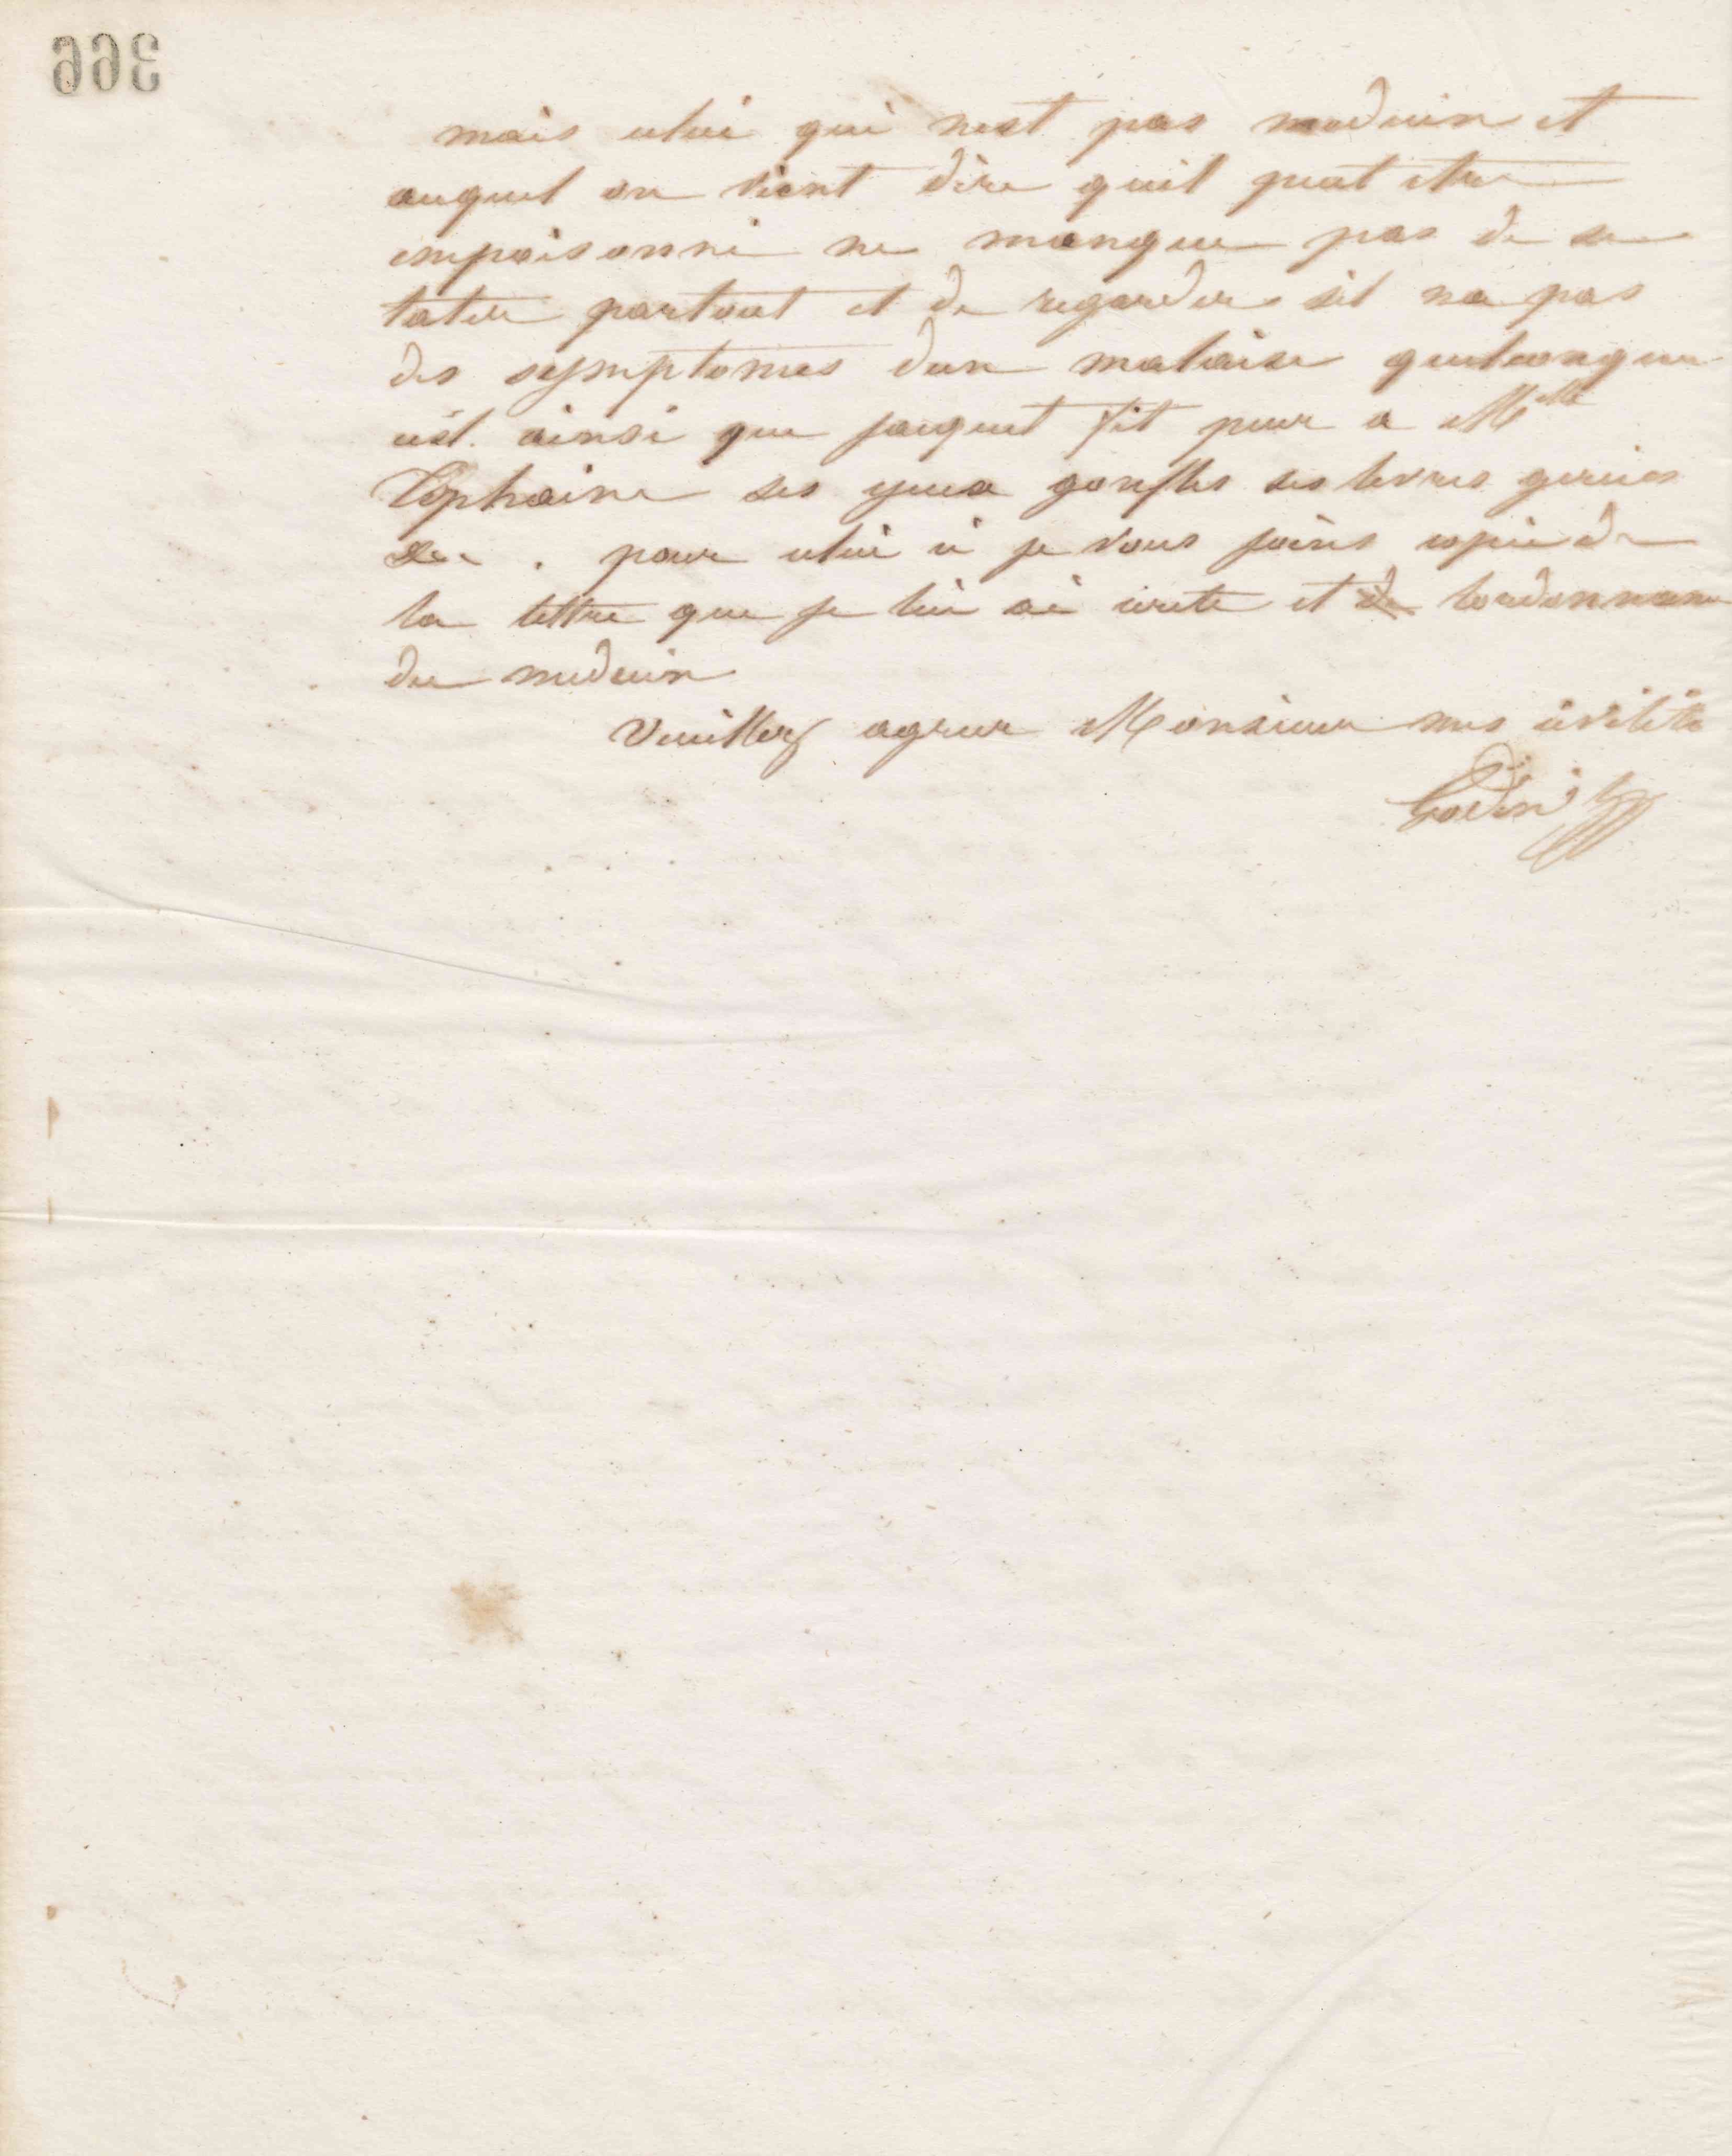 366
mais celui qui nest pas medecin et
auquel on vient dire quil peut etre
empoisonné ne manque pas de se
tater partout et de regarder sil na pas
des symptomes dun malaise quelconque
cest ainsi que jacquet fit pour a Mlle
ses yeux gonfles ses levres gercies
&c . pour celui ci je vous joins copie de
la lettre que je lui ai ecrite et de lordonnance
du medecin
Veuillez agreer Monsieur mes civilités
Godin